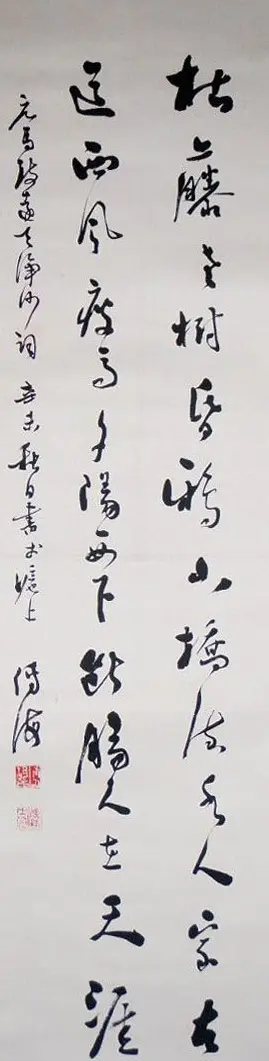 枯藤老樹昏鴉小橋流水人家古
道西風瘦馬夕陽西下斷腸人在天涯
元馬致遠天淨沙詞 辛未秋日書于滬上